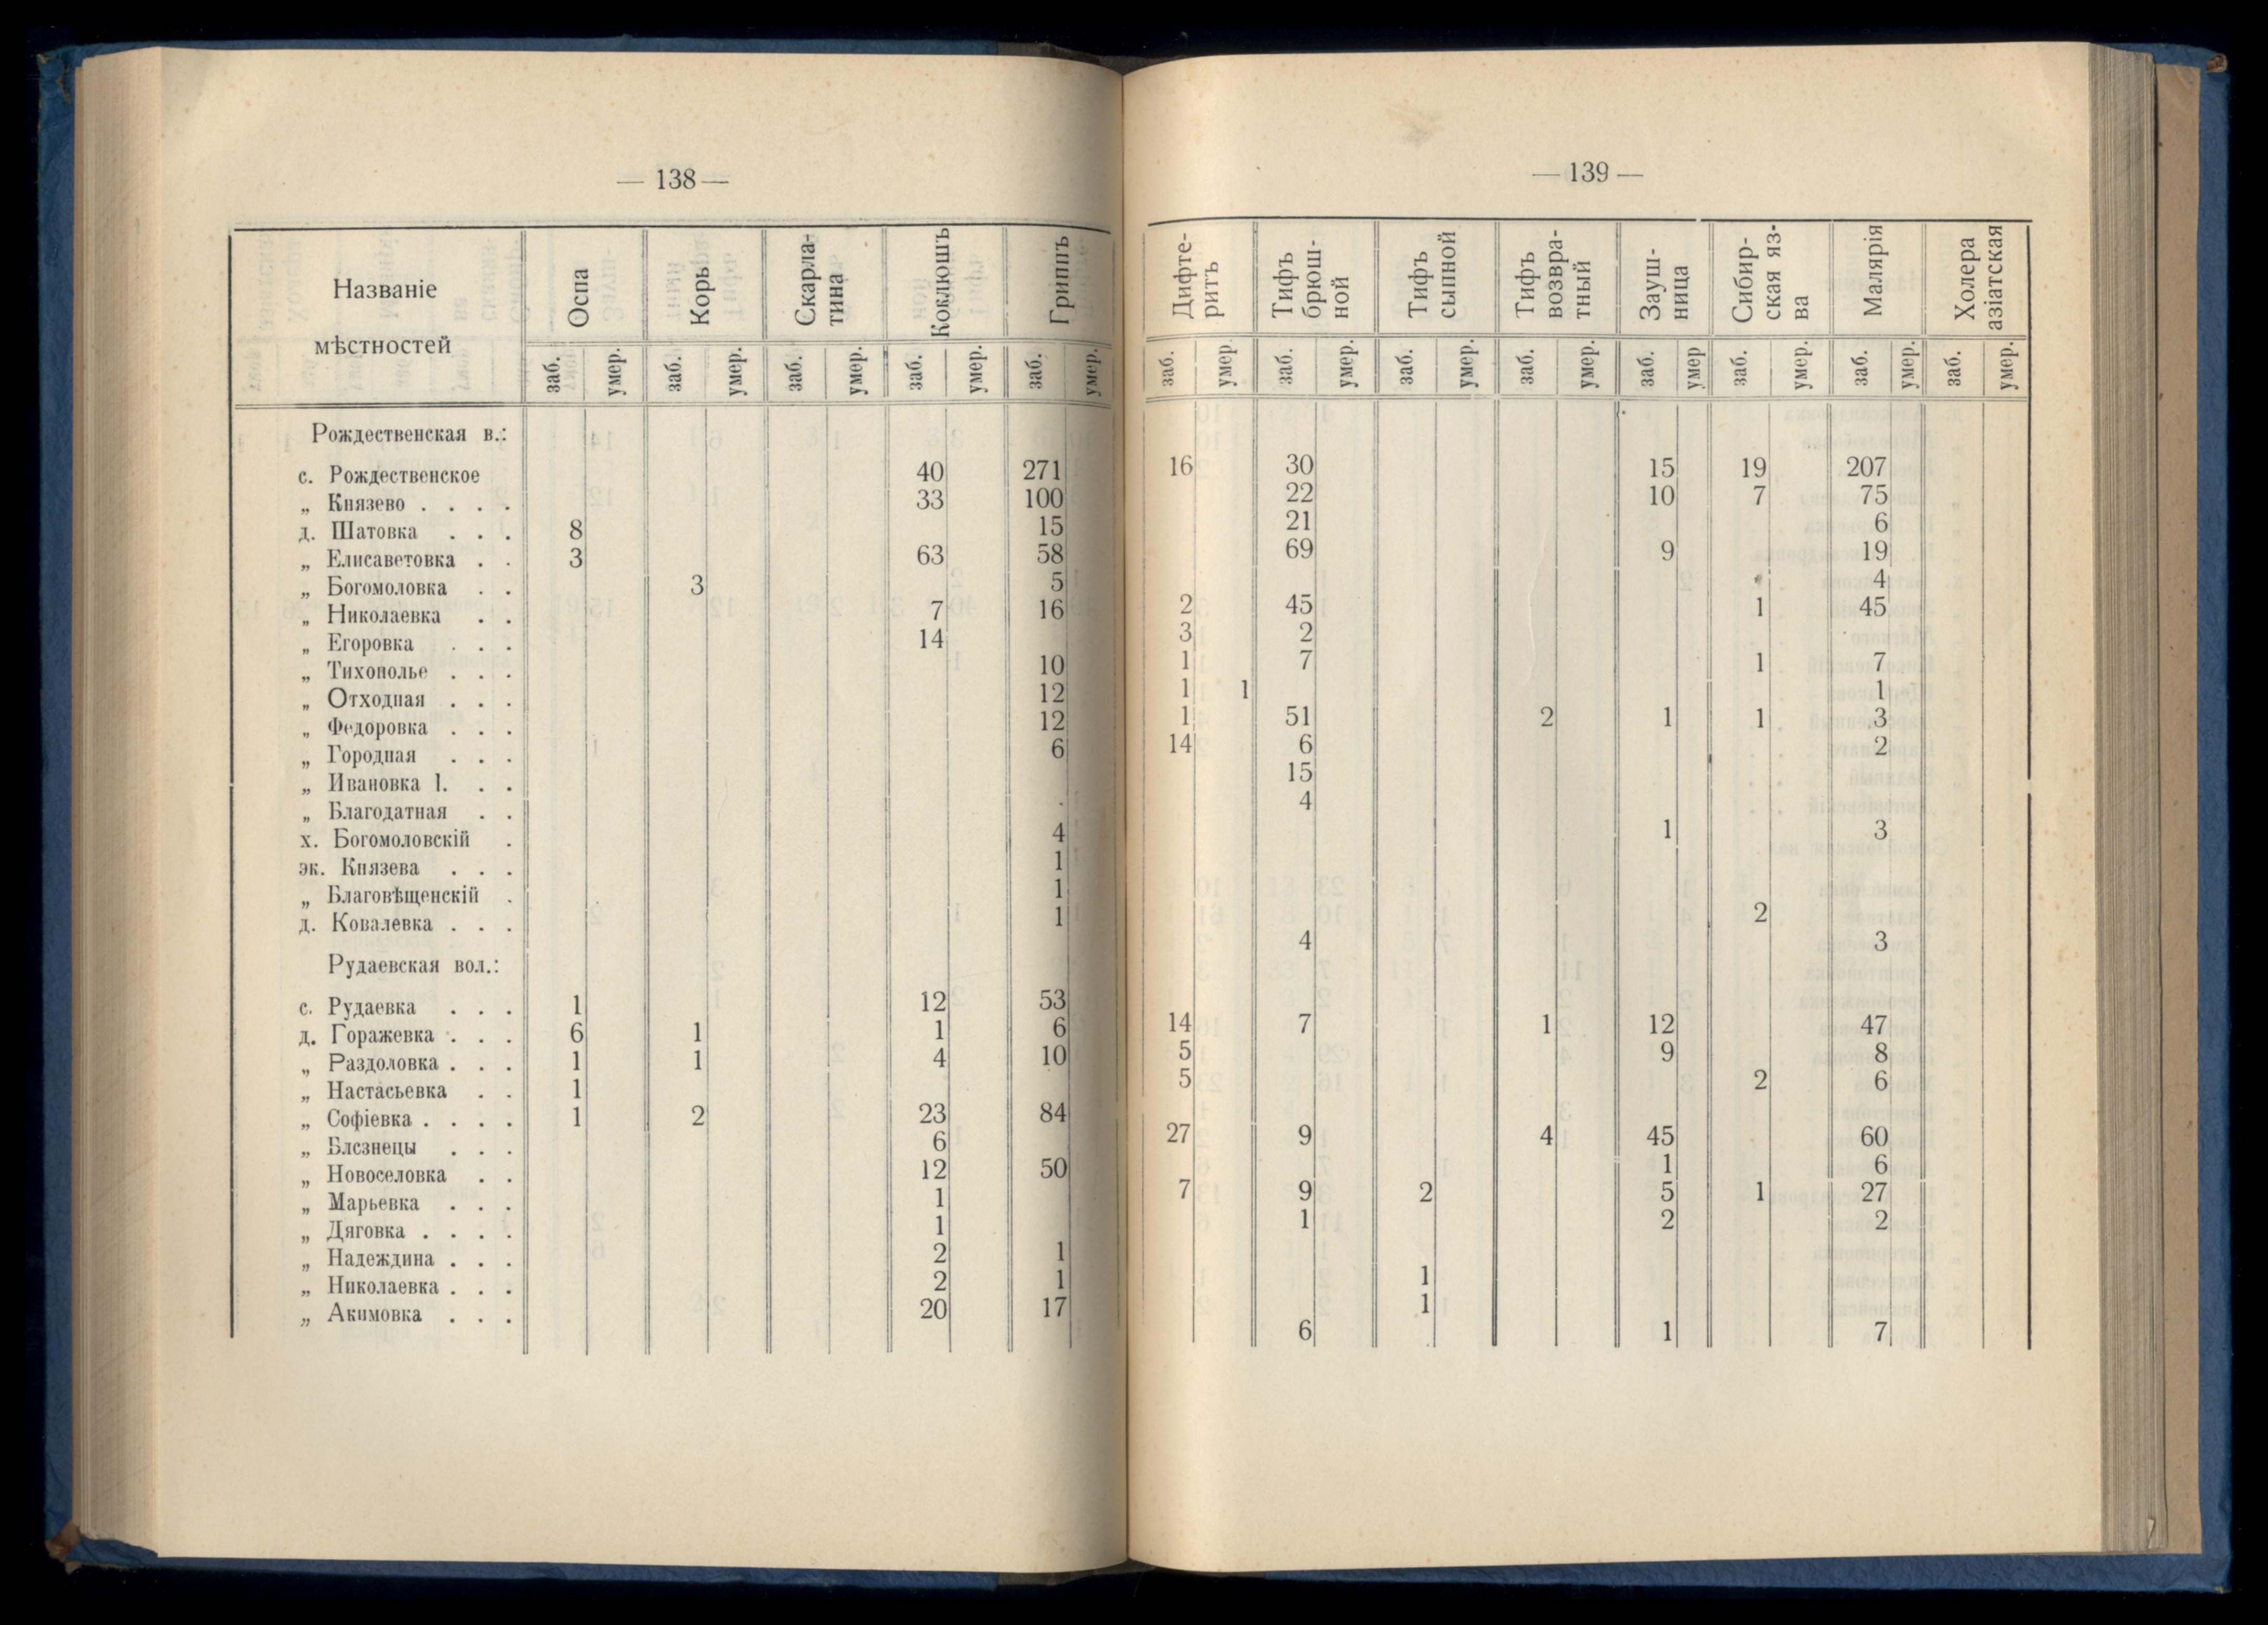 — 138 —
Названіе мѣстностей | Оспа | Корь | Скарла-тина | Коклюшъ | Гриппъ
заб. | умер. | заб. | умер. | заб. | умер. | заб. | умер. | заб. | умер.
Рождественская в.:
с. Рождественское 40 271
„ Князево . . . . 33 100
д. Шатовка . . . 8 15
„ Елисаветовка . . 3 63 58
„ Богомоловка . . 3 5
„ Николаевка . . 7 16
„ Егоровка . . . 14
„ Тихополье . . . 10
„ Отходная . . . 12
„ Федоровка . . . 12
„ Городная . . . 6
„ Ивановка 1. . .
„ Благодатная . .
х. Богомоловскій . 4
эк. Князева . . . 1
„ Благовѣщенскій . 1
д. Ковалевка . . . 1
Рудаевская вол.:
с. Рудаевка . . . 1 12 53
д. Горажевка . . . 6 1 1 6
„ Раздоловка . . . 1 1 4 10
„ Настасьевка . . 1
„ Софіевка . . . . 1 2 23 84
„ Блезнецы . . . 6
„ Новоселовка . . 12 50
„ Марьевка . . . 1
„ Дяговка . . . . 1
„ Надеждина . . . 2 1
„ Николаевка . . . 2 1
„ Акимовка . . . 20 17
— 139 —
Дифте-ритъ | Тифъ брюш-ной | Тифъ сыпной | Тифъ возвра-тный | Зауш-ница | Сибир-ская яз-ва | Малярія | Холера азіатская
заб. | умер. | заб. | умер. | заб. | умер. | заб. | умер. | заб. | умер | заб. | умер. | заб. | умер. | заб. | умер.
16 30 15 19 207
22 10 7 75
21 6
69 9 19
4
2 45 1 45
3 2
1 7 1 7
1 1 1
1 51 2 1 1 3
14 6 2
15
4
1 3
2
4 3
14 7 1 12 47
5 9 8
5 2 6
27 9 4 45 60
1 6
7 9 2 5 1 27
1 2 2
1
1
6 1 7